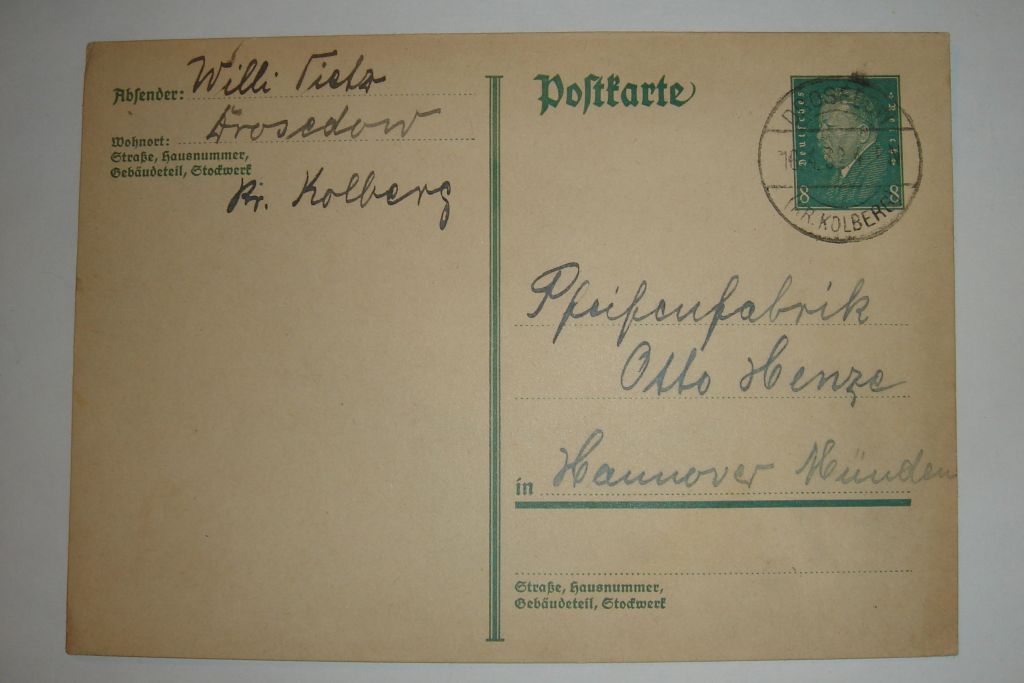 Absender: Willi Tietz
Wohnort: Drosedow
Straße, Hausnummer,
Gebäudeteil, Stockwerk
Kr. Kolberg
Postkarte
Deutsches Reich
8 8
(KR. KOLBERG)
Pfeifenfabrik
Otto Henze
in Hannover Münden
Straße, Hausnummer,
Gebäudeteil, Stockwerk